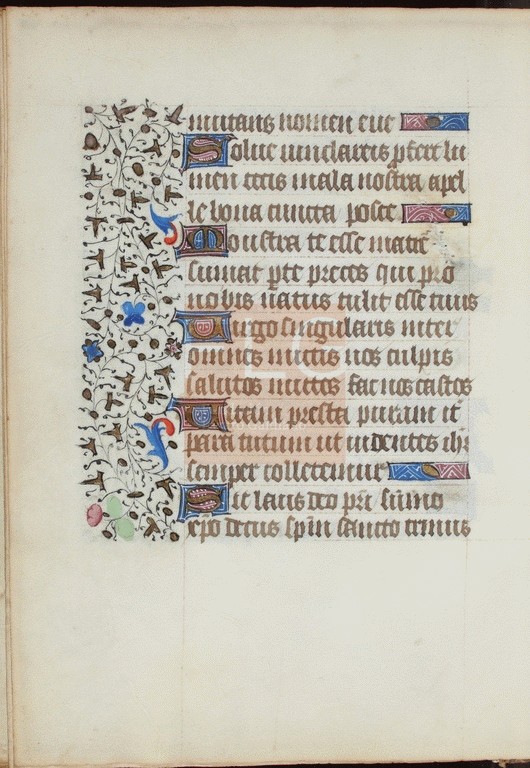 mutans nomen eve
Solve vincla reis pfer lu
men cecis mala nostra apel
le bona cuncta posce
Monstra te esse matrē
sumat p te preces qui pro
nobis natus tulit esse tuus
Virgo singularis inter
omnes mitis nos culpis
solutos mites fac nos castos
Vitam presta puram it
para tutum ut videntes ihū
semper colletemur
Sit laus deo pri sūmo
xpo decus spūi sancto trinus
LC